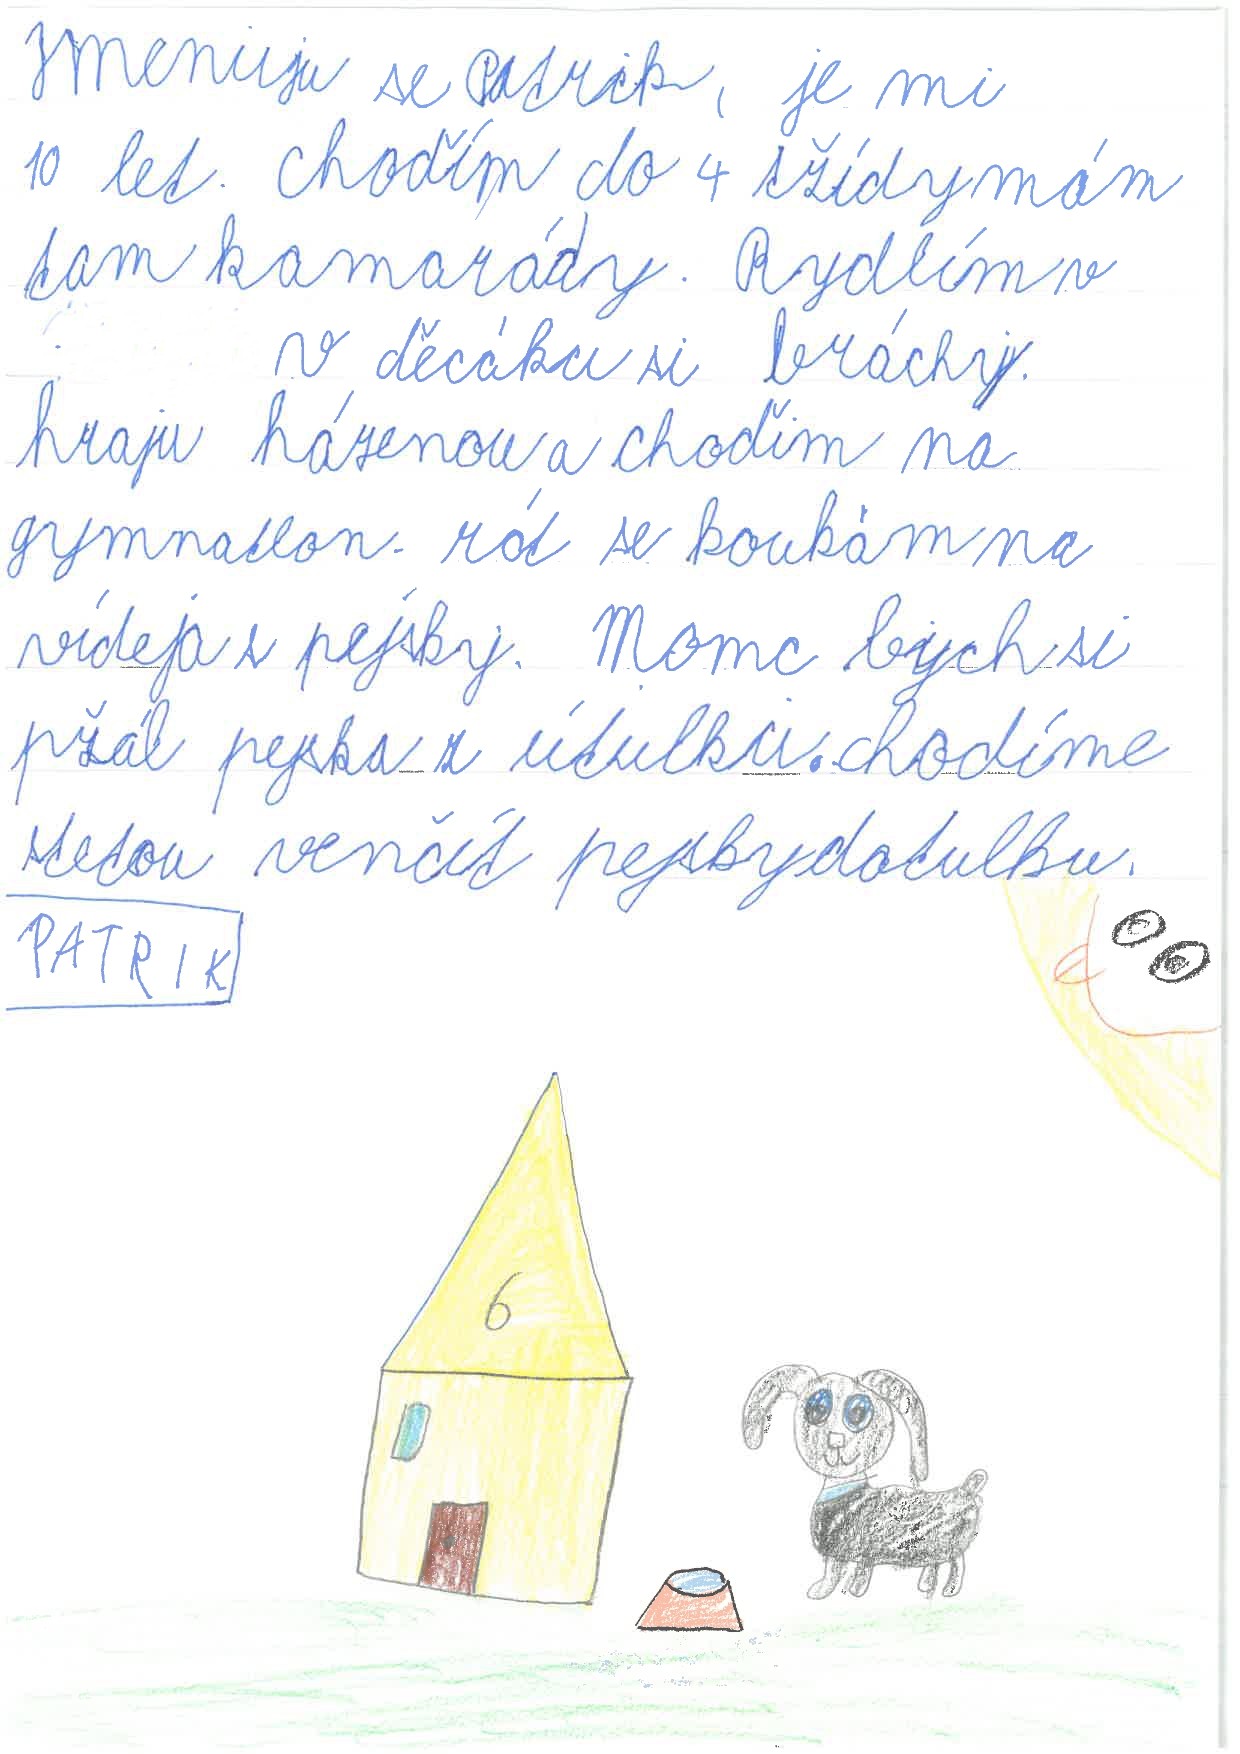 Jmenuju se Patrick, je mi
10 let. chodřím do 4 tžídy mám
tam kamarády. Bydlím v
v děcáku si bráchy.
hraju házenou a chodím na
gymnatlon. rád se koukám na
vídeja s pejsky. Momc bych si
pžál pejska z útulku. chodíme
stetou venčit pejskydotulku.
PATRIK
6